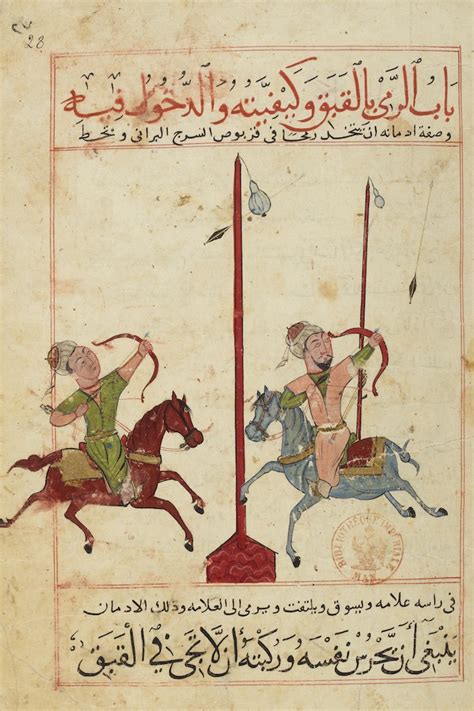 28
باب الرمي بالقبق وكيفيته والدخول فيه
وصفة ادمانه ان تتخذ رمحا في قربوص السرج البراني وتحط
في راسه علامه ويسوق ويلتفت ويرمي الى العلامه وذلك الادمان
ينبغي أن يحرس نفسه وركبته أن لا تجي في القبق
BIBLIOTHEQUE IMPERIALE
MAN.